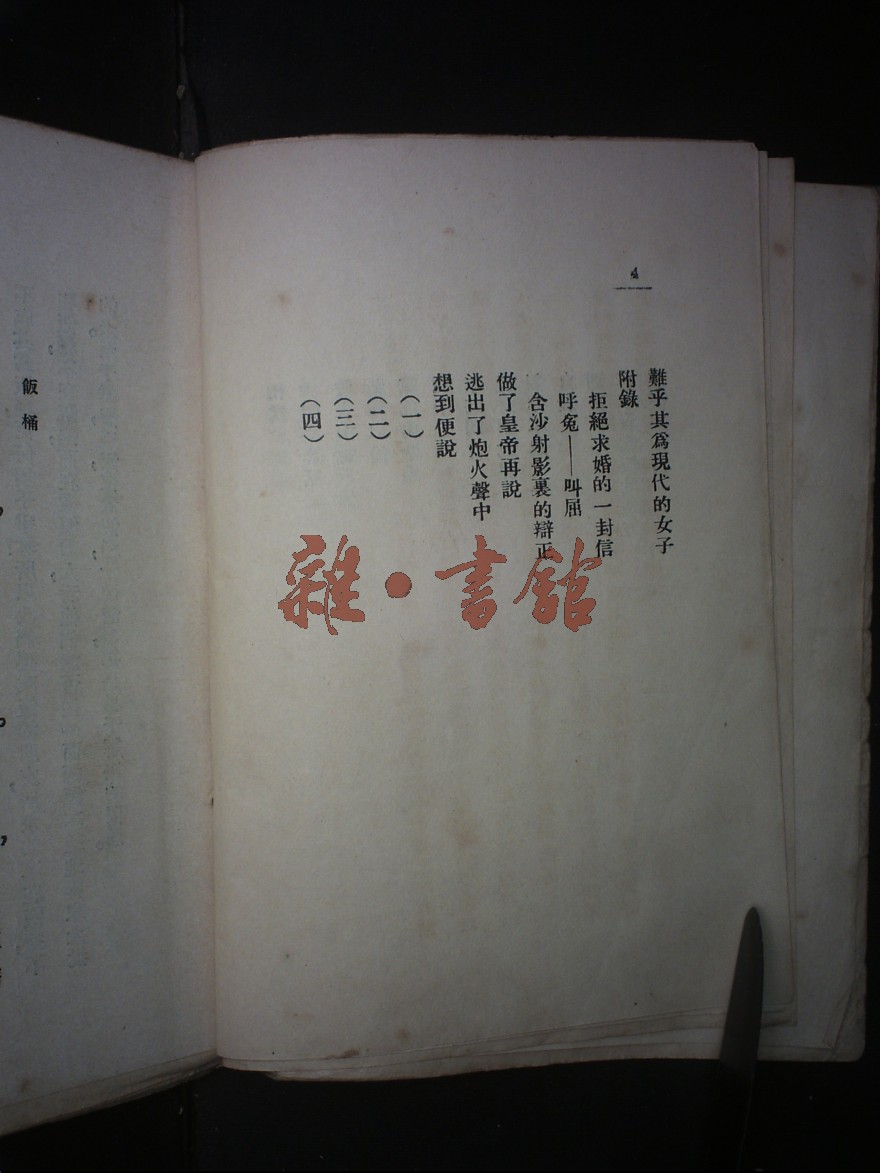 4
難乎其爲現代的女子
附錄
拒絕求婚的一封信
呼冤——叫屈
含沙射影裏的辯正
做了皇帝再說
逃出了炮火聲中
想到便說
（一）
（二）
（三）
（四）
雜·書館
飯桶